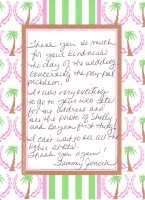 Thank you so much
for your kindness
the day of the wedding
concerning the pay pal
problem.
It was very exciting
to go to your web-site
for my address and
see the photo of Shelly
and Bryon first thing!
I can't wait to see all the
other shots.
Thank you again!